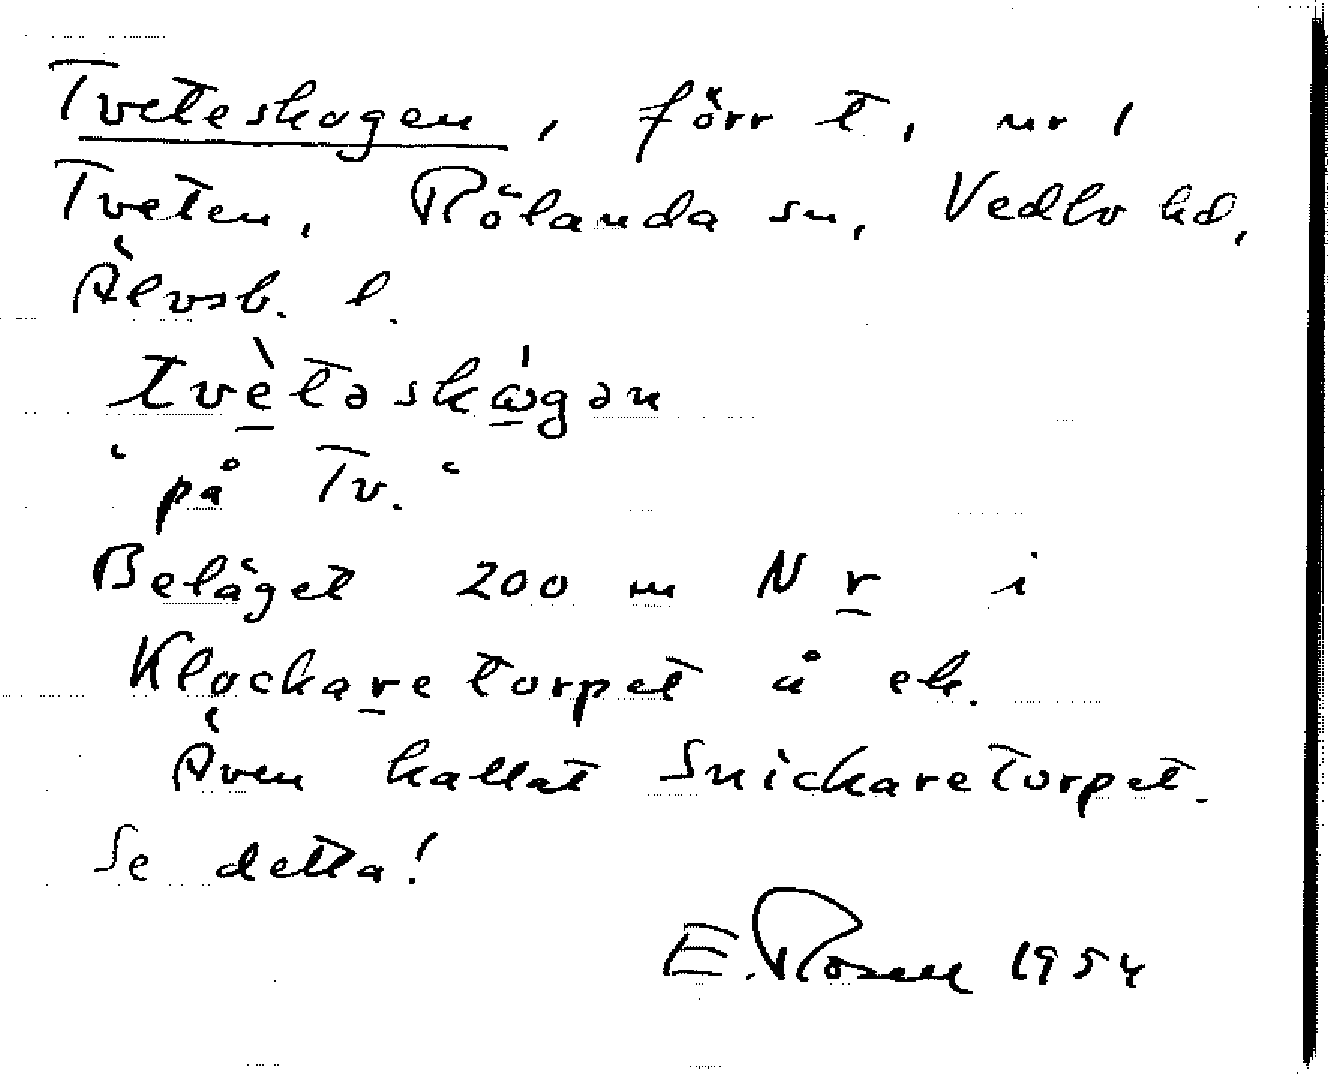 Tveteskogen, förr t, nr 1
Tveten, Rölanda sn, Vedbo hd,
Älvsb. l.
tvètəskɷ́gən
"på Tv."
Beläget 200 m N r i
Klockaretorpet å ek.
Även kallat Snickaretorpet.
Se detta!
E. Rosen 1954